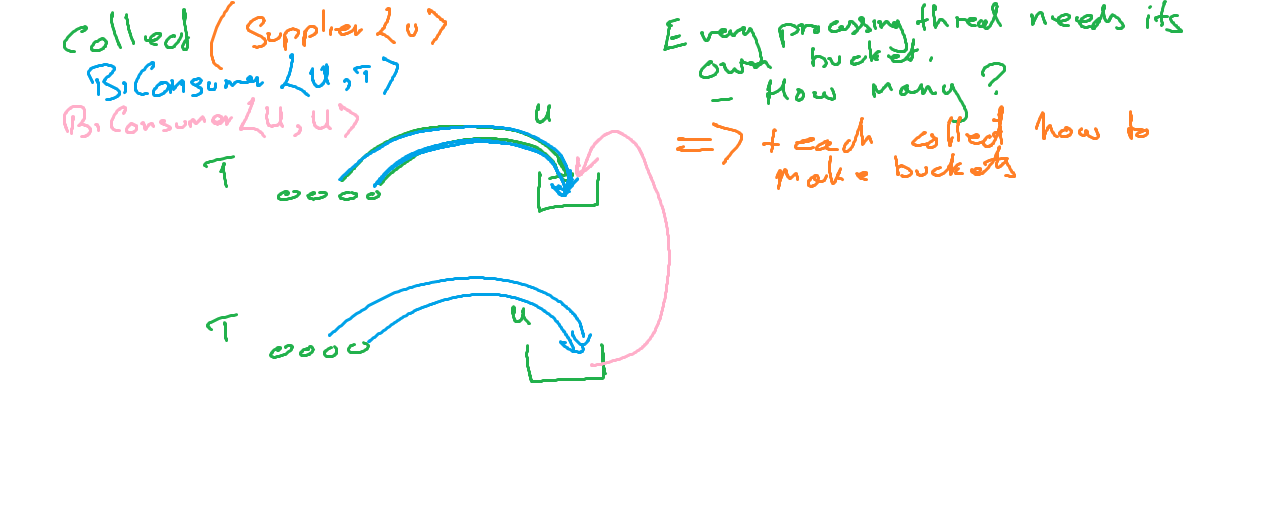 Collect (Supplier<U>
BiConsumer<U,T>
BiConsumer<U,U>
Every processing thread needs its
own bucket.
- How many?
=> teach collect how to
make buckets
U
T
U
T